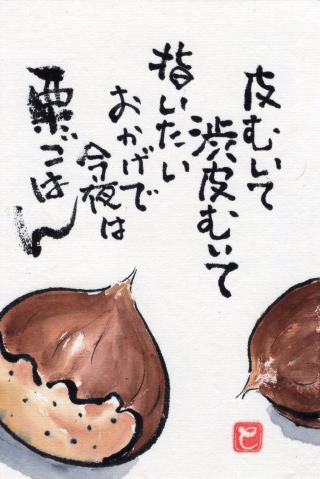 皮むいて
渋皮むいて
指いたい
おかげで
今夜は
栗ごはん
と